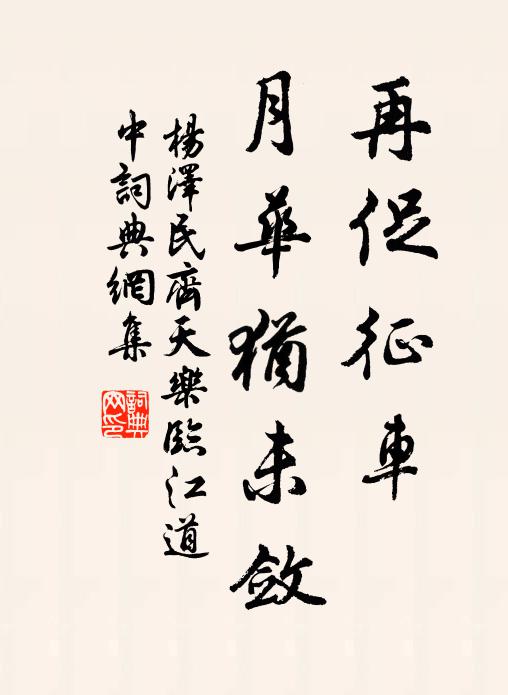 再促征車
月華猶未斂
楊澤民齊天樂臨江道
中詞典網集
詞典網印